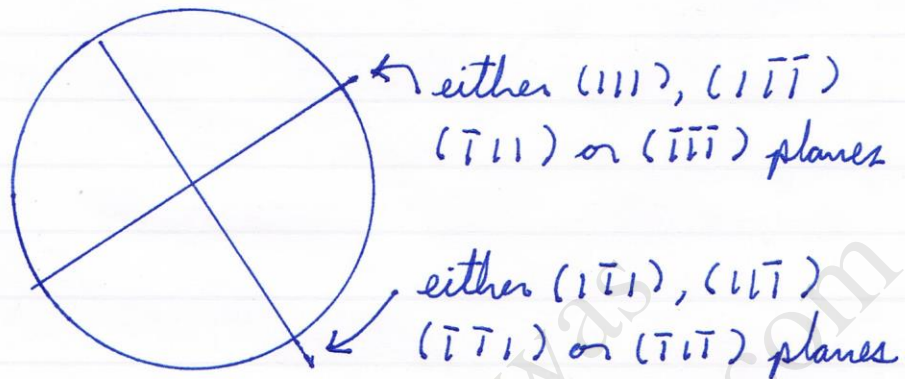 either (111), (11̄1̄)
(1̄11) or (1̄1̄1̄) planes
either (11̄1), (111̄)
(1̄1̄1) or (1̄11̄) planes